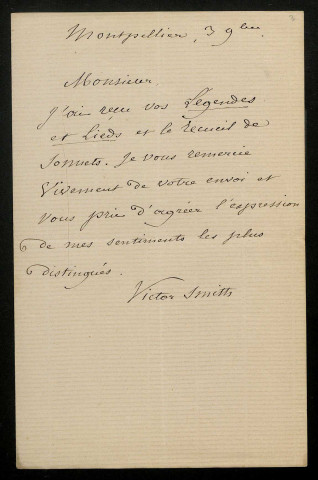 Montpellier, 3 9bre
Monsieur
J'ai reçu vos Légendes
et Lieds et le recueil de
Sonnets. Je vous remercie
Vivement de votre envoi et
vous prie d'agréer l'expression
de mes sentiments les plus
distingués.
Victor Smith